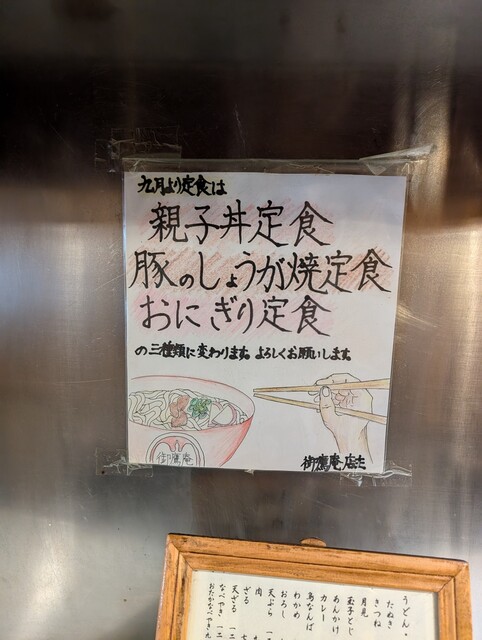 九月より定食は
親子丼定食
豚のしょうが焼定食
おにぎり定食
の三種類に変わります。よろしくお願いします。
御鷹庵
御鷹庵店主
うどん
たぬき
きつね
月見
玉子とじ
あんかけ
カレー
鳥なんば
わかめ
おろし
天ぷら
肉
ざる
天ざる
なべやき
おたかなべやき